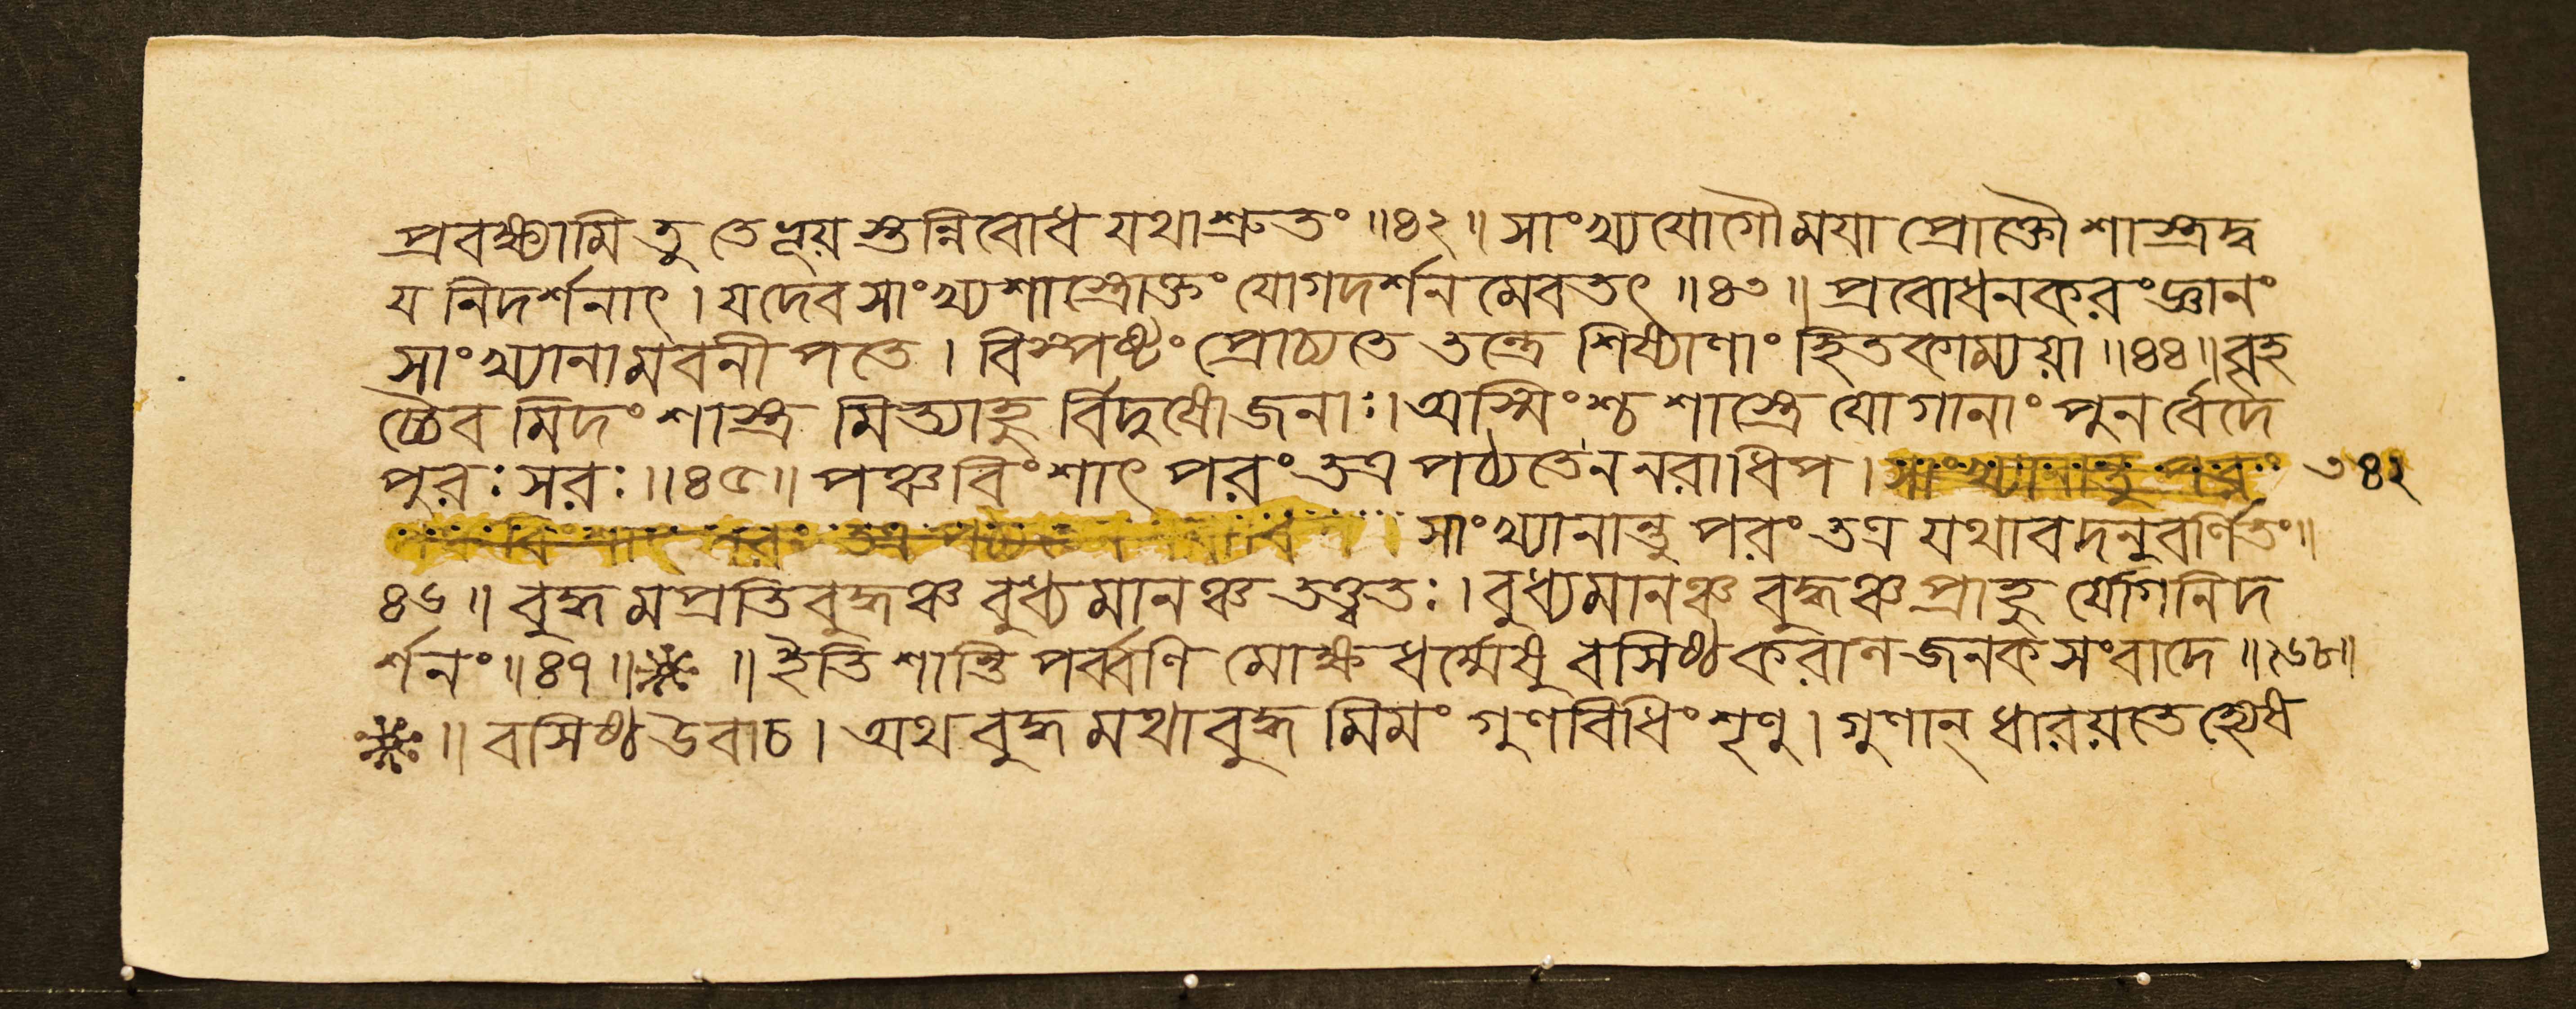 প্রবক্ষ্যামি তু তে ভূয় স্তন্নিবোধ যথাশ্রুতং ॥৪২॥ সাংখ্যযোগৌ ময়া প্রোক্তৌ শাস্ত্রদ্ব
য নিদর্শনাৎ । যদেব সাংখ্যশাস্ত্রোক্তং যোগদর্শন মেবতৎ ॥৪৩॥ প্রবোধনকরং জ্ঞানং
সাংখ্যানামবনীপতে । বিস্পষ্টং প্রোচ্যতে তন্ত্রে শিষ্যাণাং হিতকাম্যয়া ॥৪৪॥ বৃহ
চ্চৈব মিদং শাস্ত্র মিত্যাহু র্বিদুষোজনাঃ । অস্মিংশ্চ শাস্ত্রে যোগানাং পুনর্বেদে
পুরঃসরঃ ॥৪৫॥ পঞ্চবিংশাৎ পরং তত্র পঠ্যতে ন নরাধিপ । সাংখ্যানান্তু পরং ৩৪২
পঞ্চবিংশাৎ পরং তত্র পঠ্যতে সাংখ্যানান্তু পরং তত্র যথাবদনুবর্ণিতং॥
৪৬॥ বুদ্ধমপ্রতিবুদ্ধঞ্চ বুধ্যমানঞ্চ তত্ত্বতঃ । বুধ্যমানঞ্চ বুদ্ধঞ্চ প্রাহু র্যোগনিদ
র্শনং ॥৪৭॥ ॥ ইতি শান্তি পর্ব্বণি মোক্ষধর্ম্মেষু বসিষ্ঠকরালজনকসংবাদে
॥ বসিষ্ঠ উবাচ । অথ বুদ্ধমথাবুদ্ধ মিমং গুণবিধিং শৃণু । গুণান্ ধারয়তে হ্যেষ